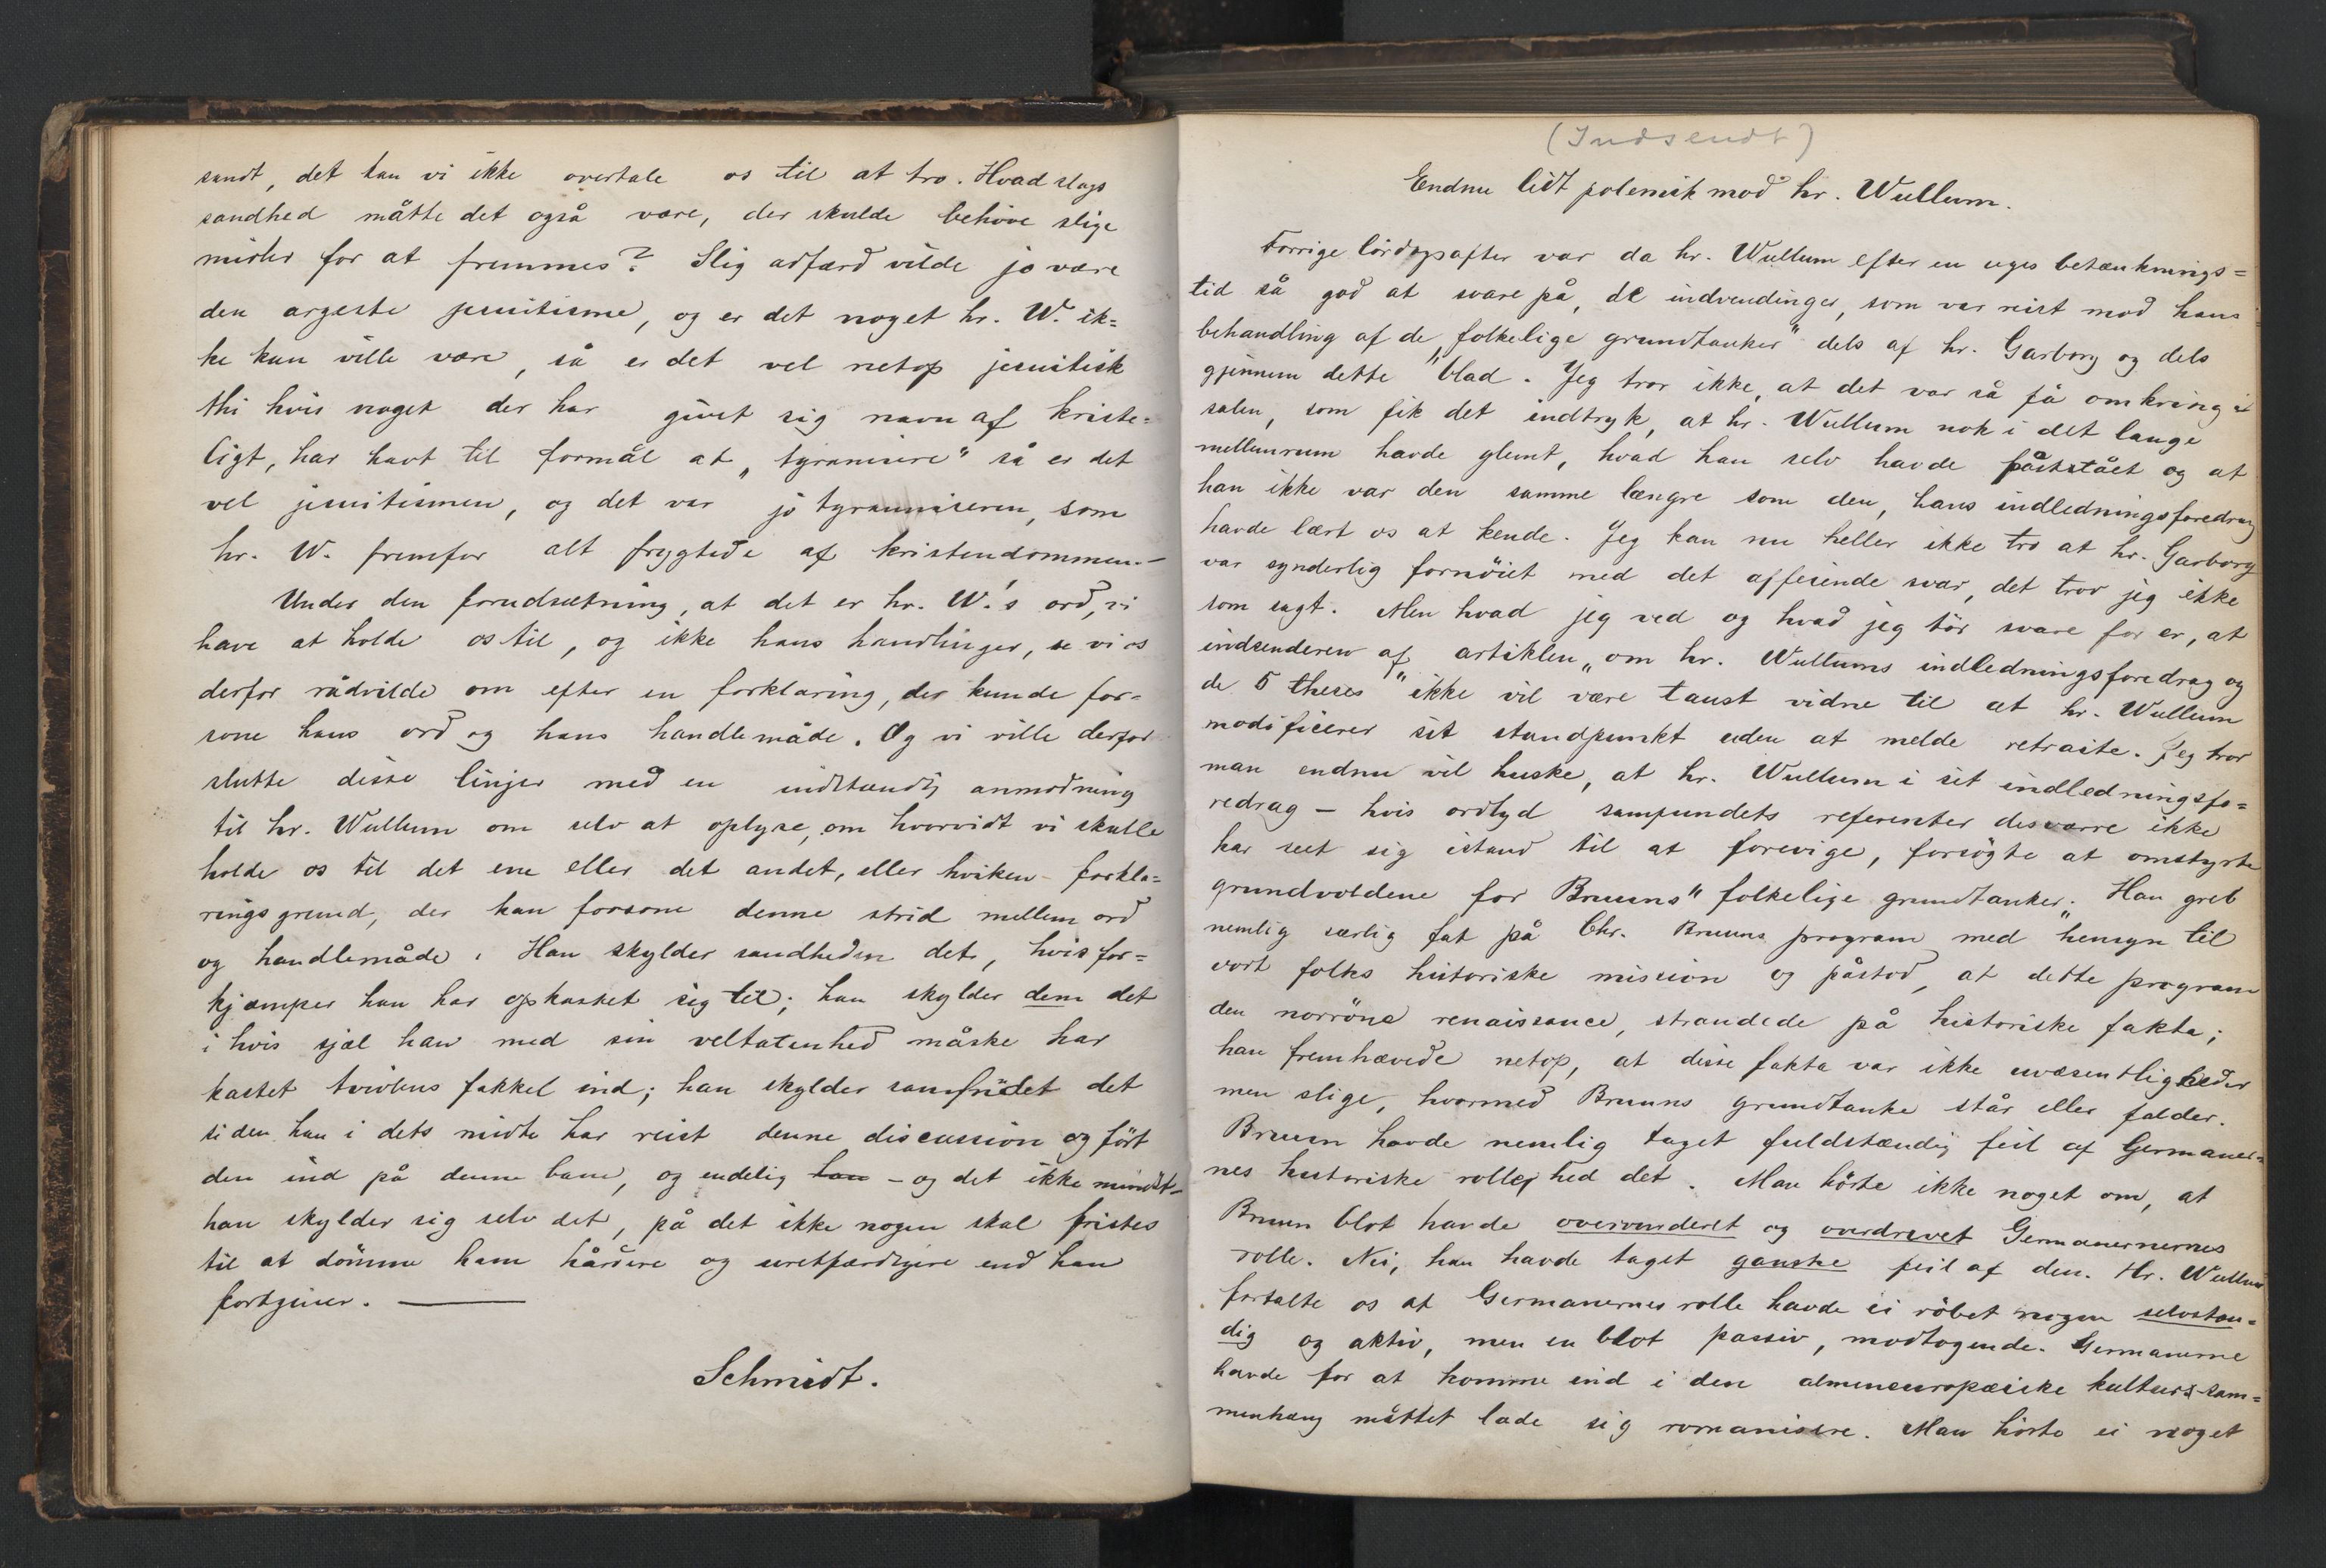 sandt, det kan vi ikke overtale os til at tro. Hvad slags
sandhed måtte det også være, der skulde behöve slige
midler for at fremmes? Slig adfærd vilde jo være
den argeste jesuitisme, og er det noget hr. W. ik=
ke kan ville være, så er det vel netop jesuitisk
thi hvis noget der har givet sig navn af kriste-
ligt, har havt til formål at „tyranisere" så er det
vel jesuitismen, og det var jo tyranniseren, som
hr. W. fremfor alt frygtede af kristendommen.—
Under den forudsætning, at det er hr. W.'s ord, vi
have at holde os til, og ikke hans handlinger, se vi os
derfor rådvilde om efter en forklaring, der kunde for=
sone hans ord og hans handlemåde. Og vi ville derfor
slutte disse linjer med en indstændig anmodning
til hr. Wullum om selv at oplyse, om hvorvidt vi skulle
holde os til det ene eller det andet, eller hvilken forkla=
ringsgrund, der kan forsone denne strid mellem ord
og handlemåde. Han skylder sandheden det, hvis for=
kjæmper han har opkastet sig til; han skylder dem det
i hvis sjæl han med sin veltalenhed måske har
kastet tvivlens fakkel ind; han skylder samfundet det
siden han i dets midte har reist denne discussion og fört
den ind på denne bane, og endelig han – og det ikke mindst –
han skylder sig selv det, på det ikke nogen skal fristes
til at dömme ham hårdere og uretfærdigere end han
fortjener. —
Schmidt.
(Indsendt)
Endnu lidt polemik mod hr. Wullum.
Forrige lördagsaften var da hr. Wullum efter en uges betænknings=
tid så god at svare på, de indvendinger, som var reist mod hans
behandling af de „folkelige grundtanker" dels af hr. Garborg og dels
gjennem dette blad. Jeg tror ikke, at det var så få omkring i
salen, som fik det indtryk, at hr. Wullum nok i det lange
mellemrum havde glemt, hvad han selv havde påstået og at
han ikke var den samme længre som den, hans indledningsforedrag
havde lært os at kende. Jeg kan nu heller ikke tro at hr. Garborg
var synderlig fornöiet med det affeiende svar, det tror jeg ikke
som sagt. Men hvad jeg ved og hvad jeg tör svare for er, at
indsenderen af artiklen „om hr. Wullums indledningsforedrag og
de 5 theses" ikke vil være taust vidne til at hr. Wullum
modificerer sit standpunkt uden at melde retraite. Jeg tror
man endnu vil huske, at hr. Wullum i sit indledningsfo=
redrag – hvis ordlyd samfundets referenter desværre ikke
har seet sig istand til at forevige, forsögte at omstyrte
grundvoldene for Bruuns "folkelige grundtanker„. Han greb
nemlig særlig fat på Chr. Bruuns program med hensyn til
vort folks historiske mission og påstod, at dette program
den norröne renaissance, strandede på historiske fakta;
han fremhævede netop, at disse fakta var ikke uvæsentligheder
men slige, hvormed Bruuns grundtanke står eller falder.
Bruun havde nemlig taget fuldstændig feil af Germaner=
nes historiske rolle, hed det. Man hörte ikke noget om, at
Bruun blot havde overvurderet og overdrevet Germanernernes
rolle. Nei, han havde taget ganske feil af den. Hr. Wullum
fortalte os at Germanernes rolle havde ei röbet nogen selvstæn=
dig og aktiv, men en blot passiv, modtagende. Germanerne
havde for at komme ind i den almeneuropæiske kulturs-sam=
menhæng måttet lade sig romanisere. Man hörte ei noget